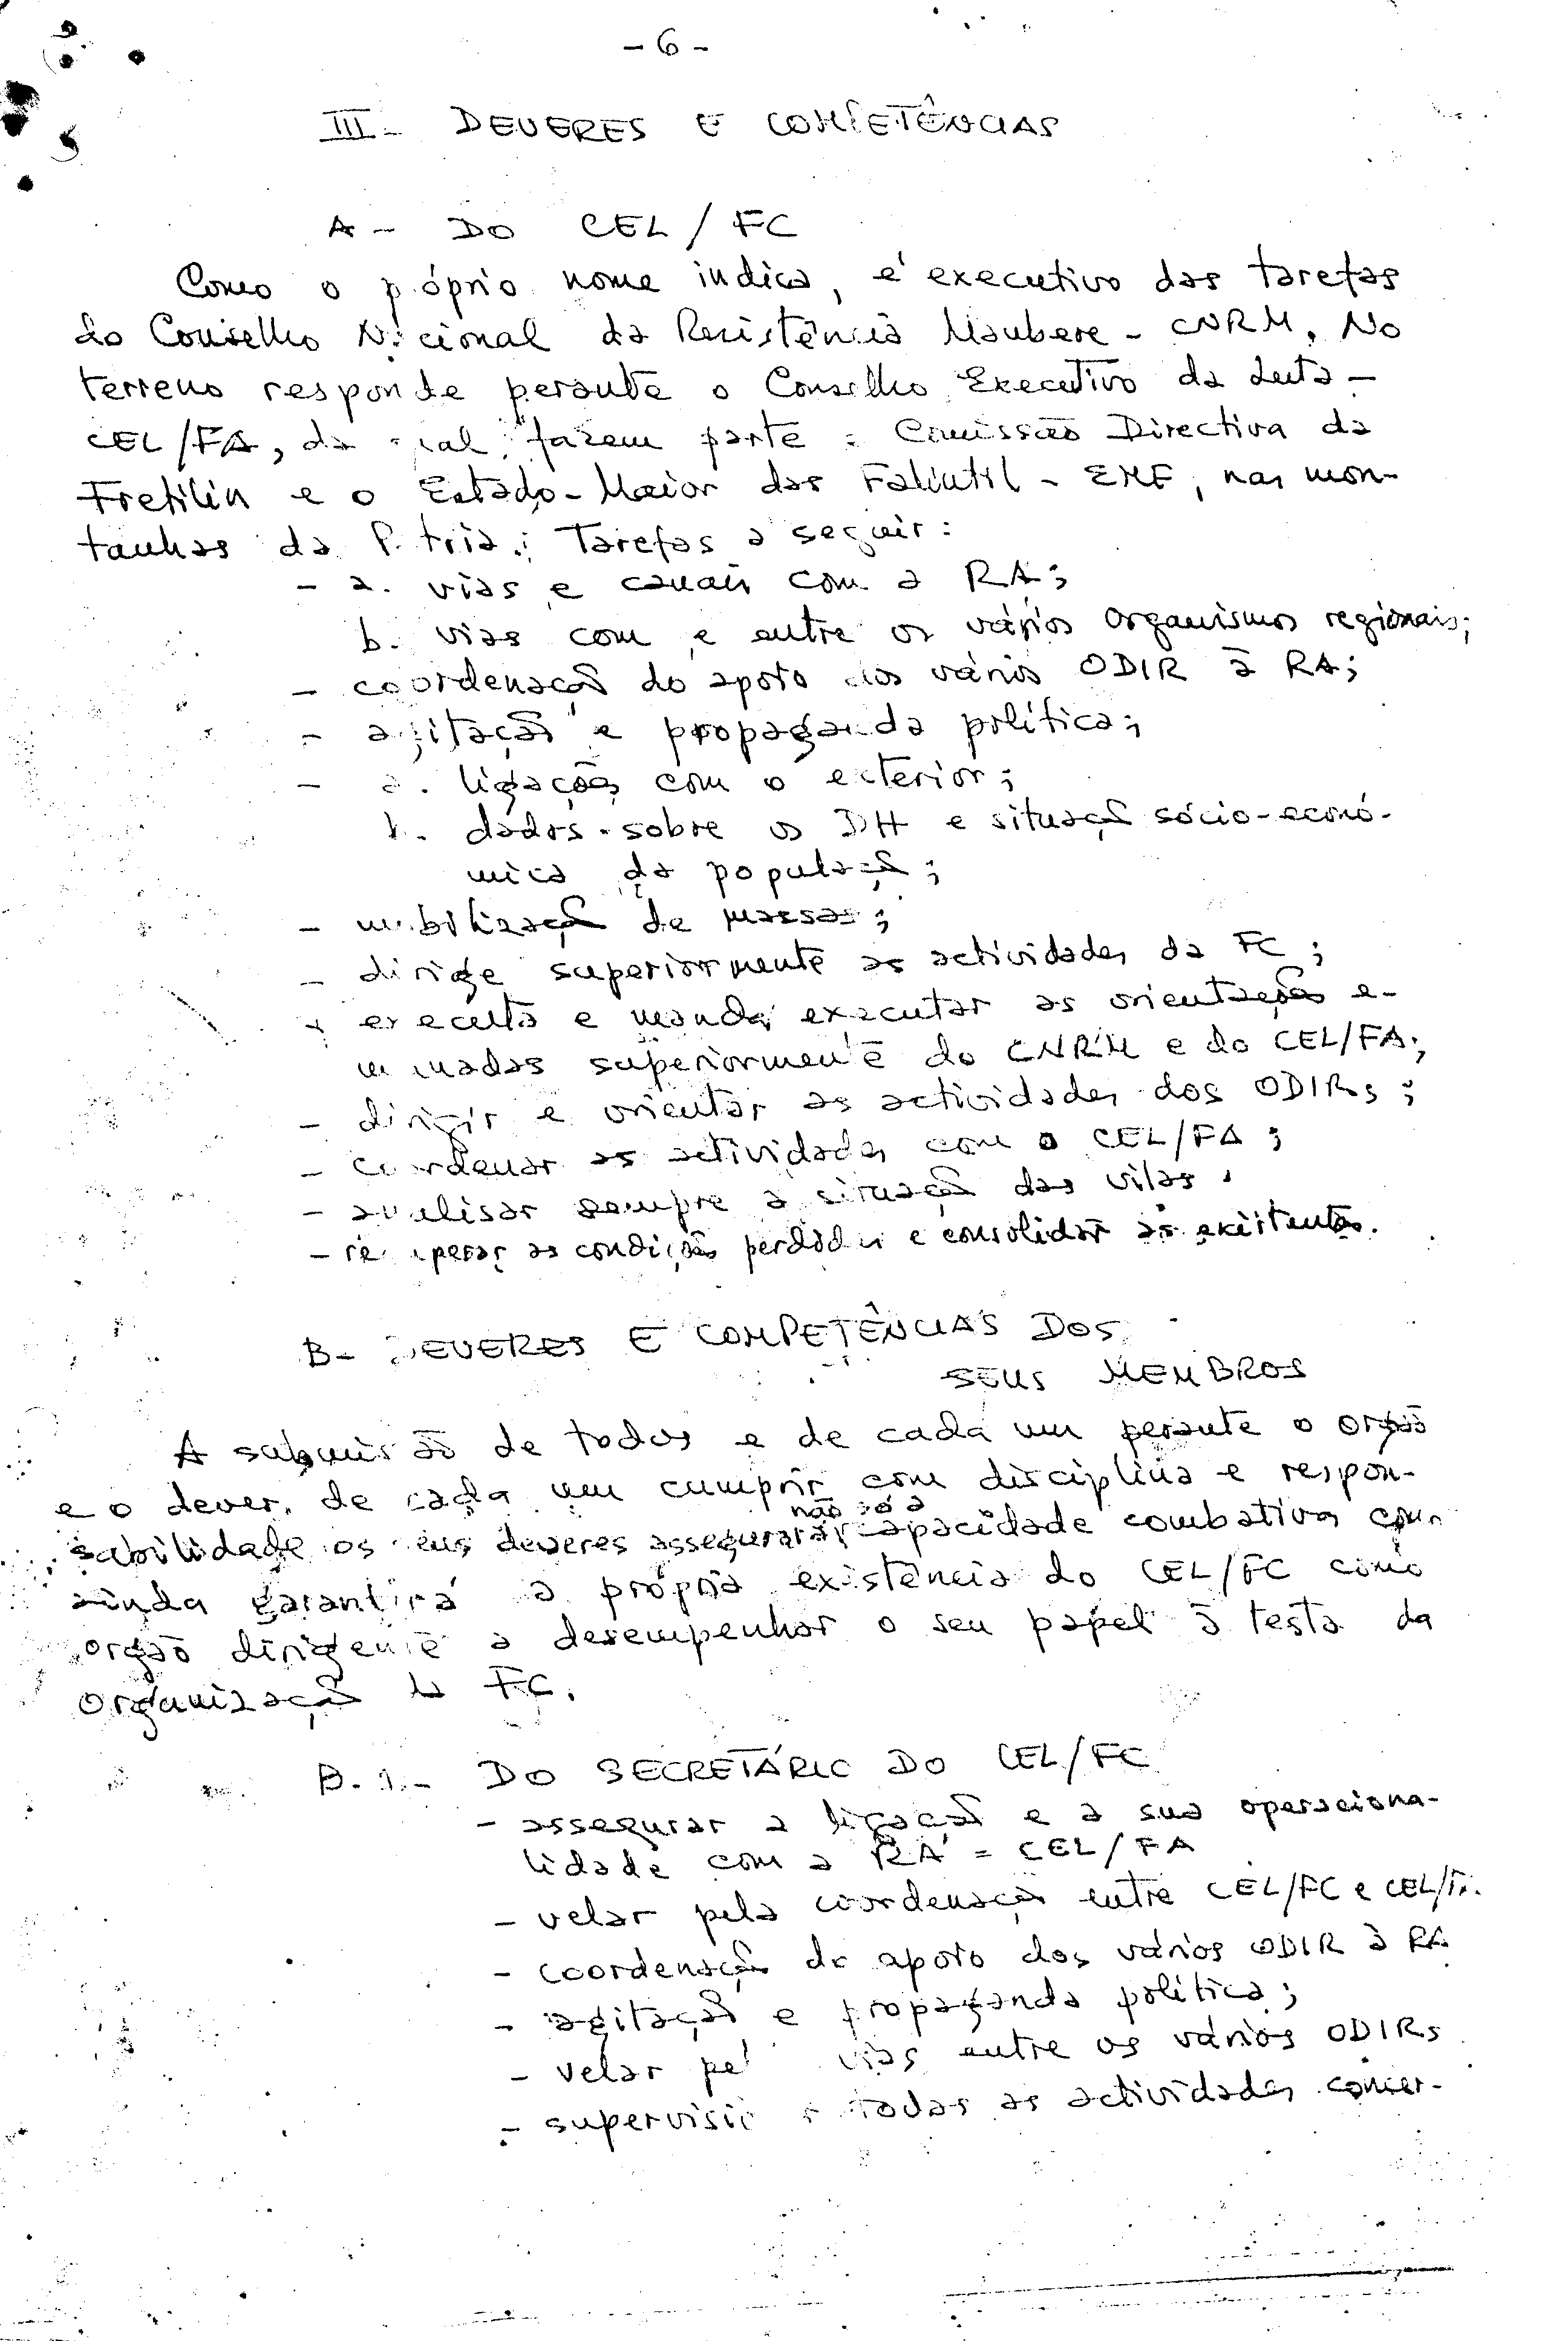 - 6 -
III - DEVERES E COMPETÊNCIAS
A - DO CEL / FC
Como o próprio nome indica, é executivo das tarefas
do Conselho Nacional da Resistência Maubere - CNRM. No
terreno responde perante o Conselho Executivo da Luta -
CEL/FA, da qual fazem parte a Comissão Directiva da
Fretilin e o Estado-Maior das Falintil - EMF, nas mon-
tanhas da Pátria. Tarefas a seguir:
- a. vias e canais com a RA;
b. vias com e entre os vários organismos regionais;
- coordenação do apoio dos vários ODIR à RA;
- agitação e propaganda política;
- a. ligações com o exterior;
b. dados sobre os DH e situação sócio-econó-
mica da população;
- mobilização de massas;
- dirige superiormente as actividades da FC;
- executa e manda executar as orientações e-
manadas superiormente do CNRM e do CEL/FA;
- dirigir e orientar as actividades dos ODIRs;
- coordenar as actividades com o CEL/FA;
- analisar sempre a situação das vilas,
- recuperar as condições perdidas e consolidar as existentes.
B - DEVERES E COMPETÊNCIAS DOS
SEUS MEMBROS
A submissão de todos e de cada um perante o orgão
e o dever de cada um cumprir com disciplina e respon-
não só a
sabilidade os seus deveres assegurará capacidade combativa como
ainda garantirá a própria existência do CEL/FC como
orgão dirigente a desempenhar o seu papel à testa da
organização da FC.
B.1. - DO SECRETÁRIO DO CEL/FC
- assegurar a ligação e a sua operaciona-
lidade com a RA = CEL/FA
- velar pela coordenação entre CEL/FC e CEL/FA.
- coordenação do apoio dos vários ODIR à RA
- agitação e propaganda política;
- velar vias entre os vários ODIRs
- supervisionar todas as actividades concer-